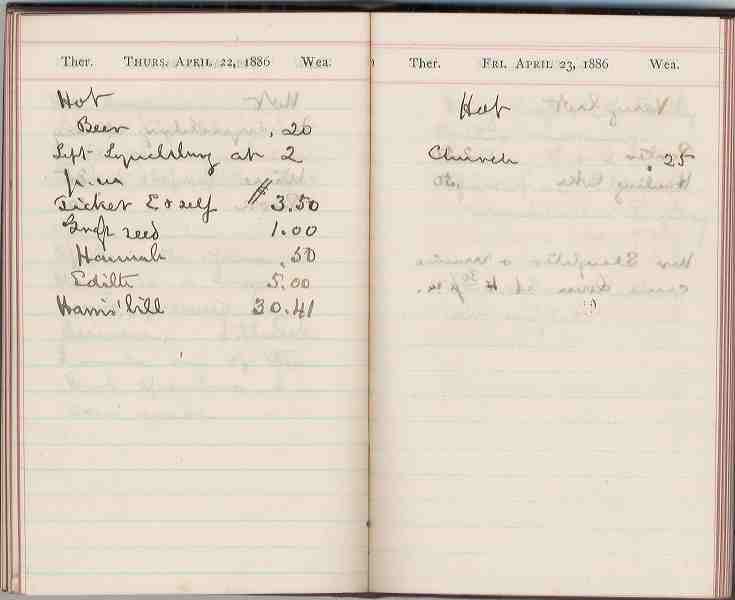 Ther. THURS. APRIL 22, 1886 Wea.
Hot
Beer .20
Left Lynchburg at 2
p.m
Ticket E & self $3.50
seed 1.00
Hannah .50
Edith 5.00
Harris' bill 30.41
Ther. FRI. APRIL 23, 1886 Wea.
Hot
Church .25